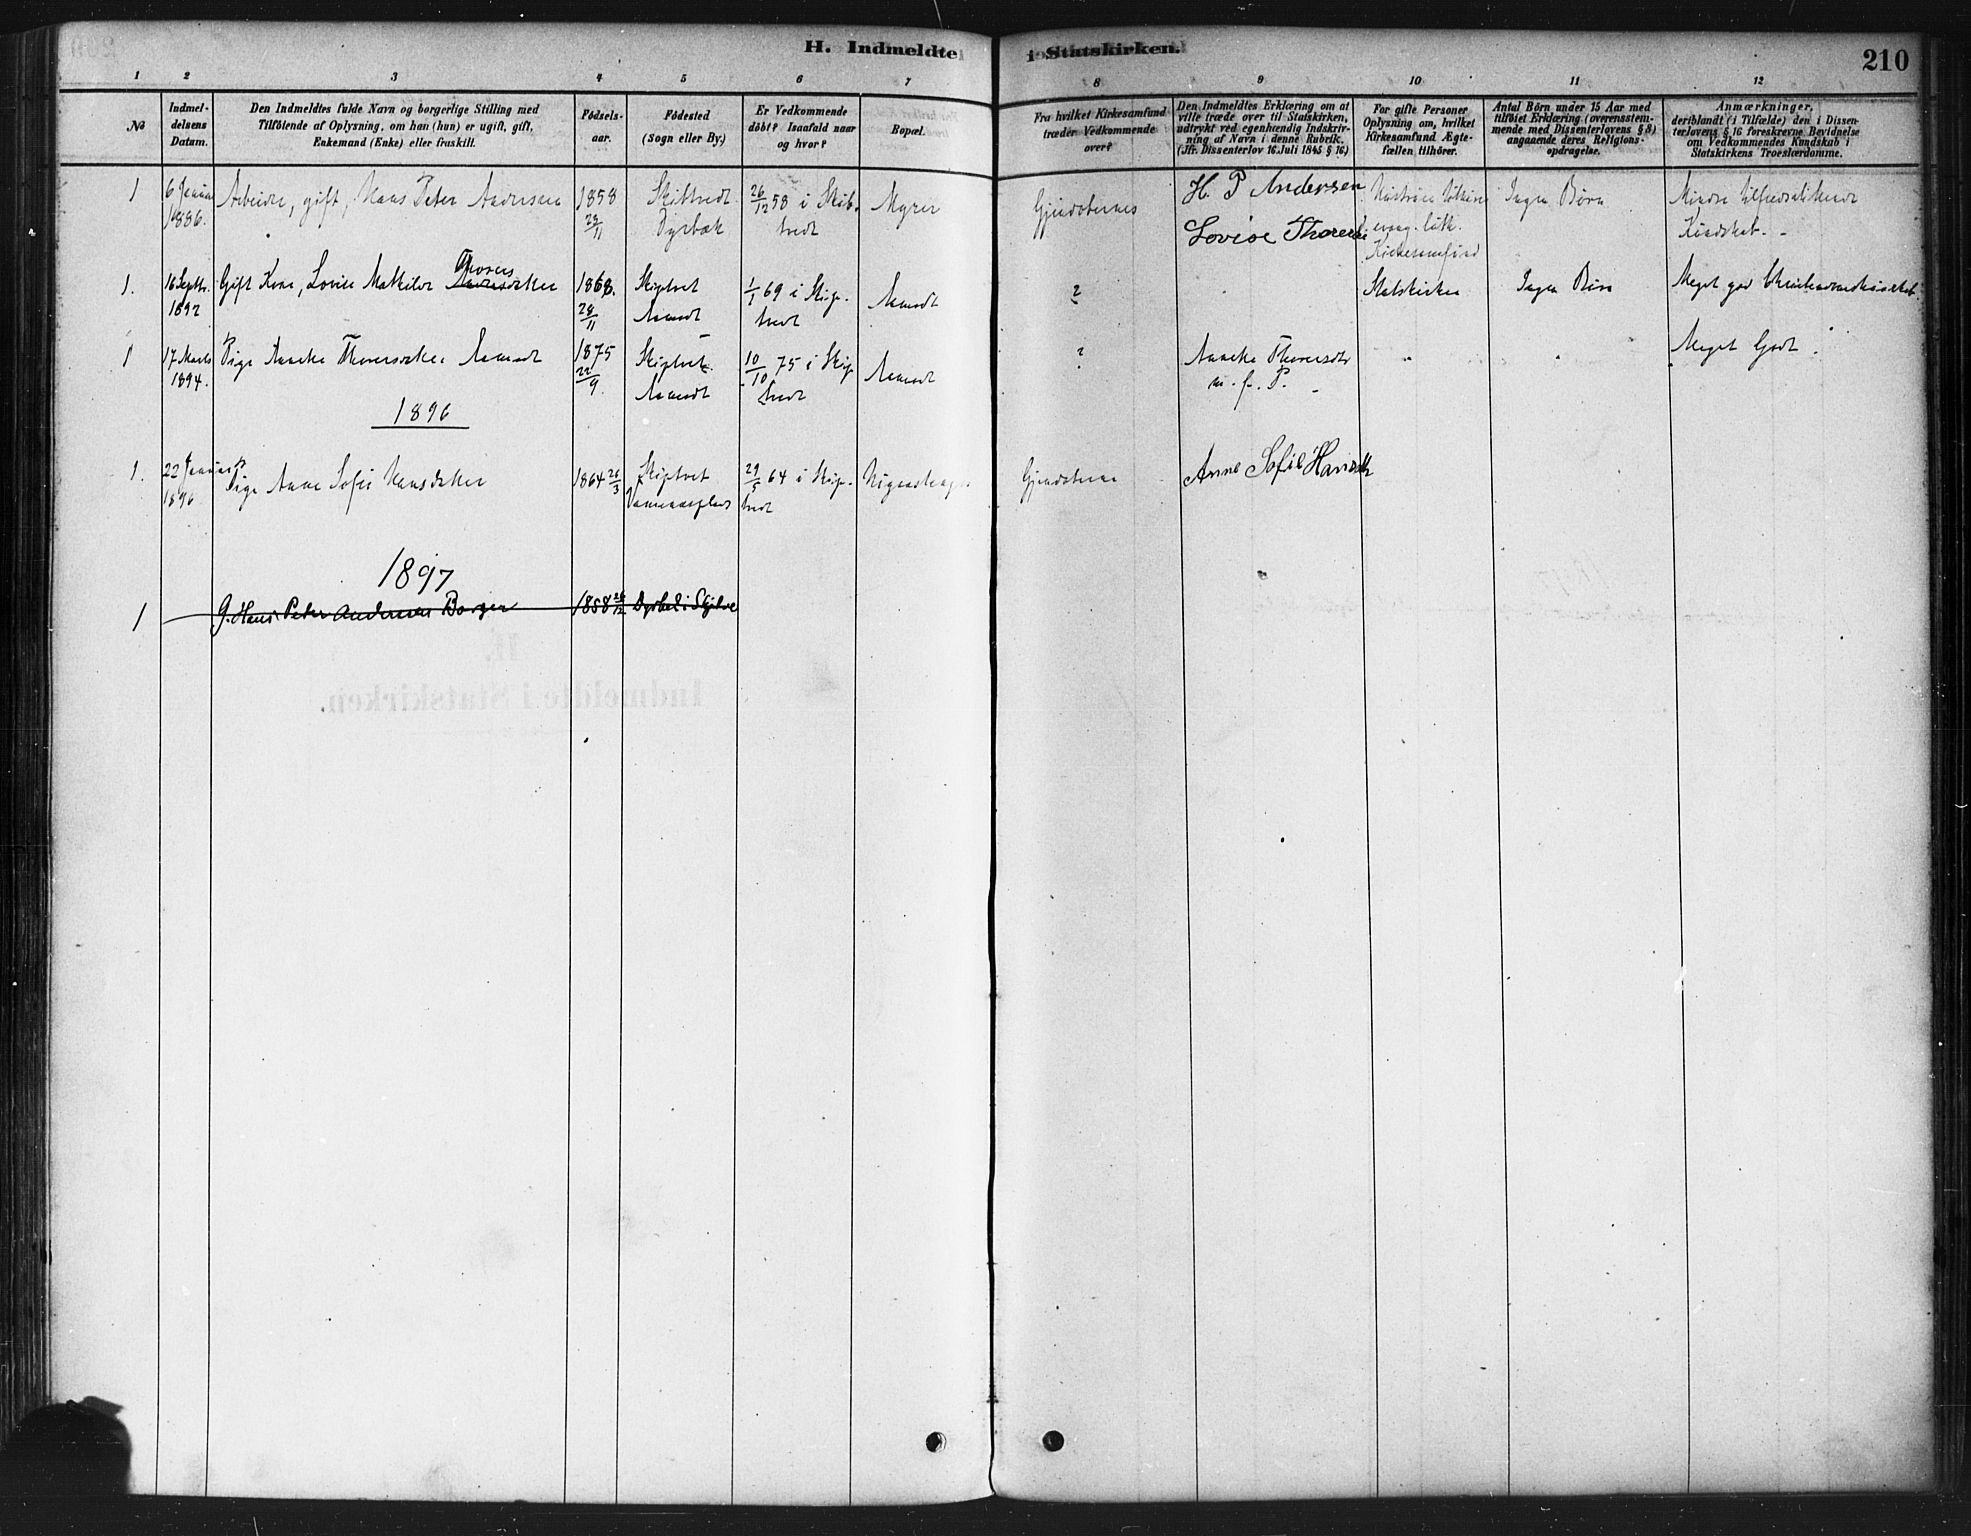 H. Indmeldte i Statskirken.
210
1 2 3 4 5 6 7 8 9 10 11 12
No
Indmel-
delsens
Datum.
Den Indmeldtes fulde Navn og borgerlige Stilling med
Tilföiende af Oplysning, om han (hun) er ugift, gift,
Enkemand (Enke) eller fraskilt.
Födsels-
aar.
Födested
(Sogn eller By.)
Er Vedkommende
döbt? Isaafald naar
og hvor?
Bopæl.
Fra hvilket Kirkesamfund
træder Vedkommende
over?
Den Indmeldtes Erklæring om at
ville træde over til Statskirken,
udtrykt ved egenhændig Indskriv-
ning af Navn i denne Rubrik.
(Jfr. Dissenterlov 16. Juli 1845 § 16)
For gifte Personer
Oplysning om, hvilket
Kirkesamfund Ægte-
fællen tilhörer.
Antal Börn under 15 Aar med
tilföiet Erklæring (overensstem-
mende med Dissenterlovens § 8)
angaaende deres Religions-
opdragelse.
Anmærkninger,
deriblandt (i Tilfælde) den i Dissen-
terlovens § 16 foreskrevne Bevidnelse
om Vedkommendes Kundskab i
Statskirkens Troeslærdomme.
1
6 Januar
1886.
Arbeider, gift, Hans Peter Andersen
1858
28/11
Skiptvedt
Dyrbæk
26/12 58 i Skib-
tvedt
Myrer
H. P Andersen
Lovise Thorersd
evang. luth.
Kirkesamfund
Ingen Börn
Mindre tilfredsstillende
Kundskab. -
1.
16 Septbr.
1892
Gift Kone, Lovise Mathilde Thorersdatter
1868.
28/11
Skiptvet
Aamodt
1/1 69 i Skip-
tvedt
Aamodt
?
Statskirken
Ingen Börn
Meget god Christendomskundskab.
1
17 Marts
1894.
Pige Anneke Thorersdatter Aamodt
1875
22/9.
Skiptvet.
Aamodt
10/10 75 i Skip
tvedt
Aamodt
?
Anneke Thorersdtr
m. f. P.
"
"
Meget Godt.
1896
1.
22 Januar
1896
Pige Anne Sofie Hansdatter
1864 26/3
Skiptvet
29/5 64 i Skip-
tvedt
Anne Sofie Hansdtr
1897
1
G. Hans Peter Andersen Borger
1858 26/12